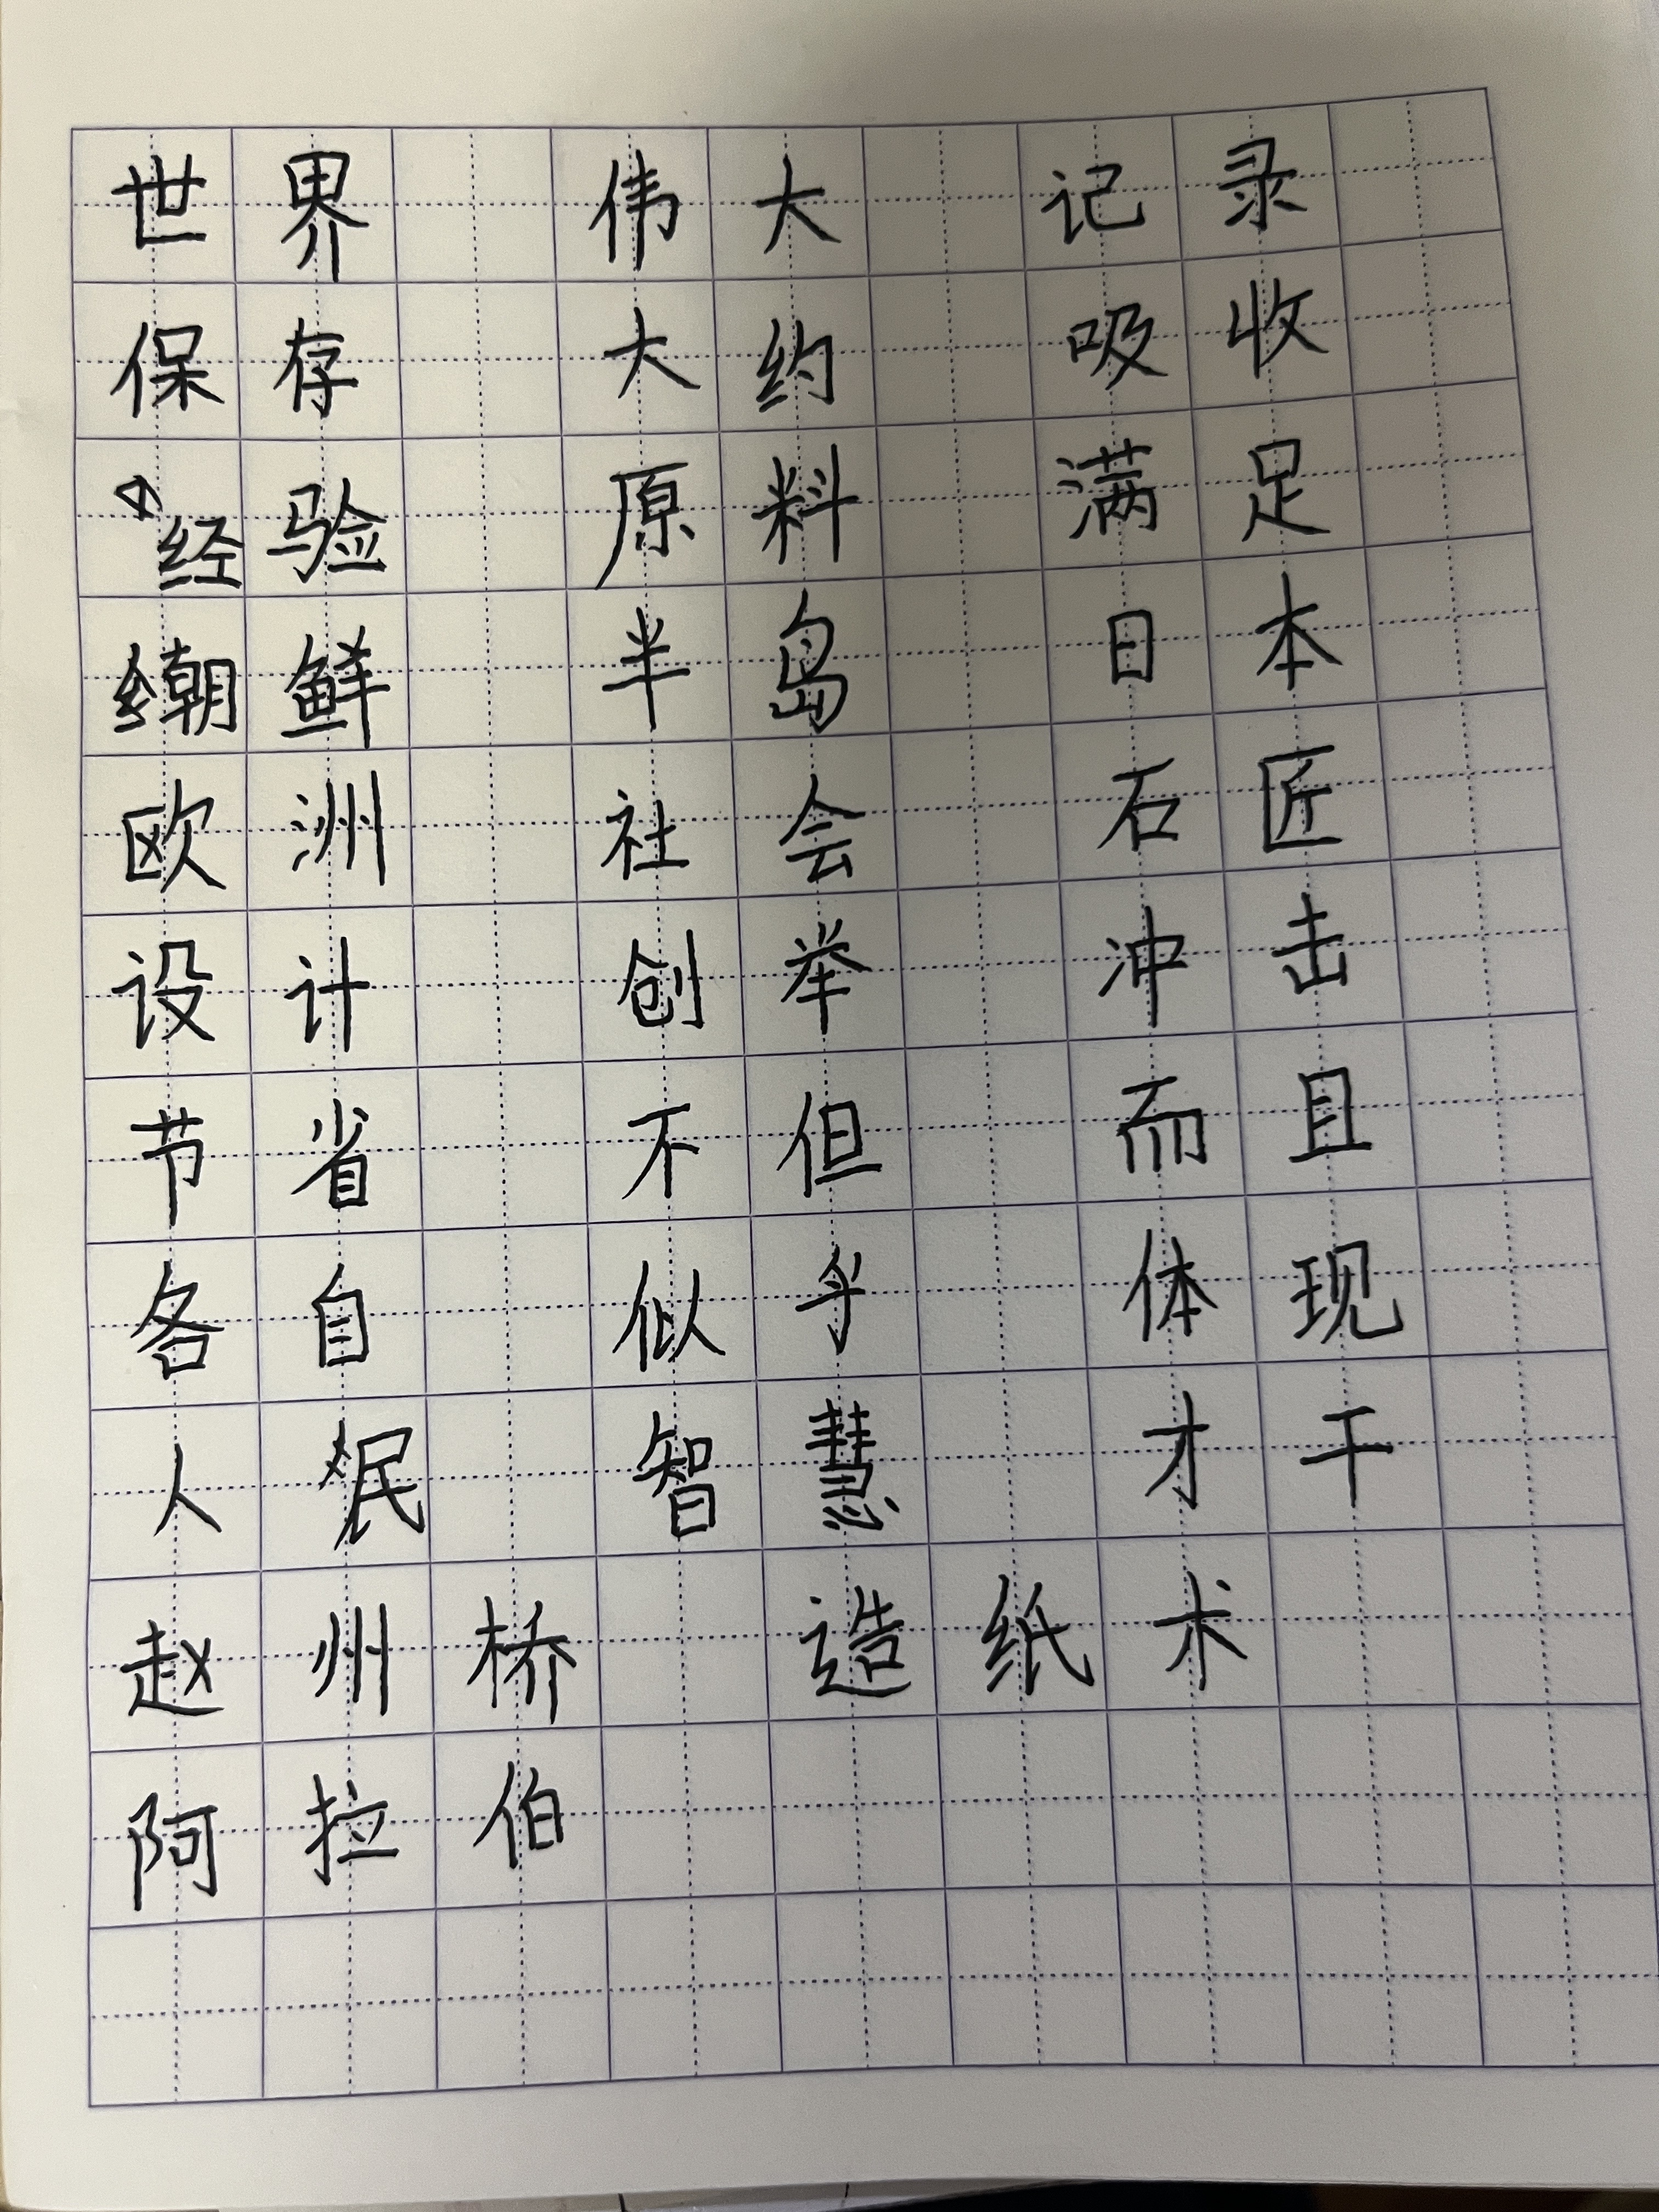 世界 伟大 记录
保存 大约 吸收
经验 原料 满足
朝鲜 半岛 日本
欧洲 社会 石匠
设计 创举 冲击
节省 不但 而且
各自 似乎 体现
人民 智慧 才干
赵州桥 造纸术
阿拉伯